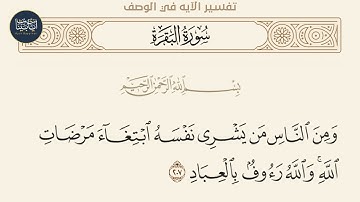 تفسير الآيه في الوصف
سُورَةُ البَقَرَةِ
بِسْمِ اللَّهِ الرَّحْمَٰنِ الرَّحِيمِ
وَمِنَ النَّاسِ مَن يَشْرِى نَفْسَهُ ابْتِغَآءَ مَرْضَاتِ
اللَّهِ ۗ وَاللَّهُ رَءُوفٌۢ بِالْعِبَادِ ٢٠٧